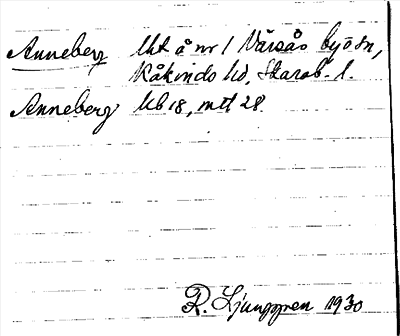 Anneberg Uht å nr 1 Värsås by o sn,
Kåkinds hd, Skarab. l.
Anneberg Ub 18, mtl 28.
R. Ljunggren 1930